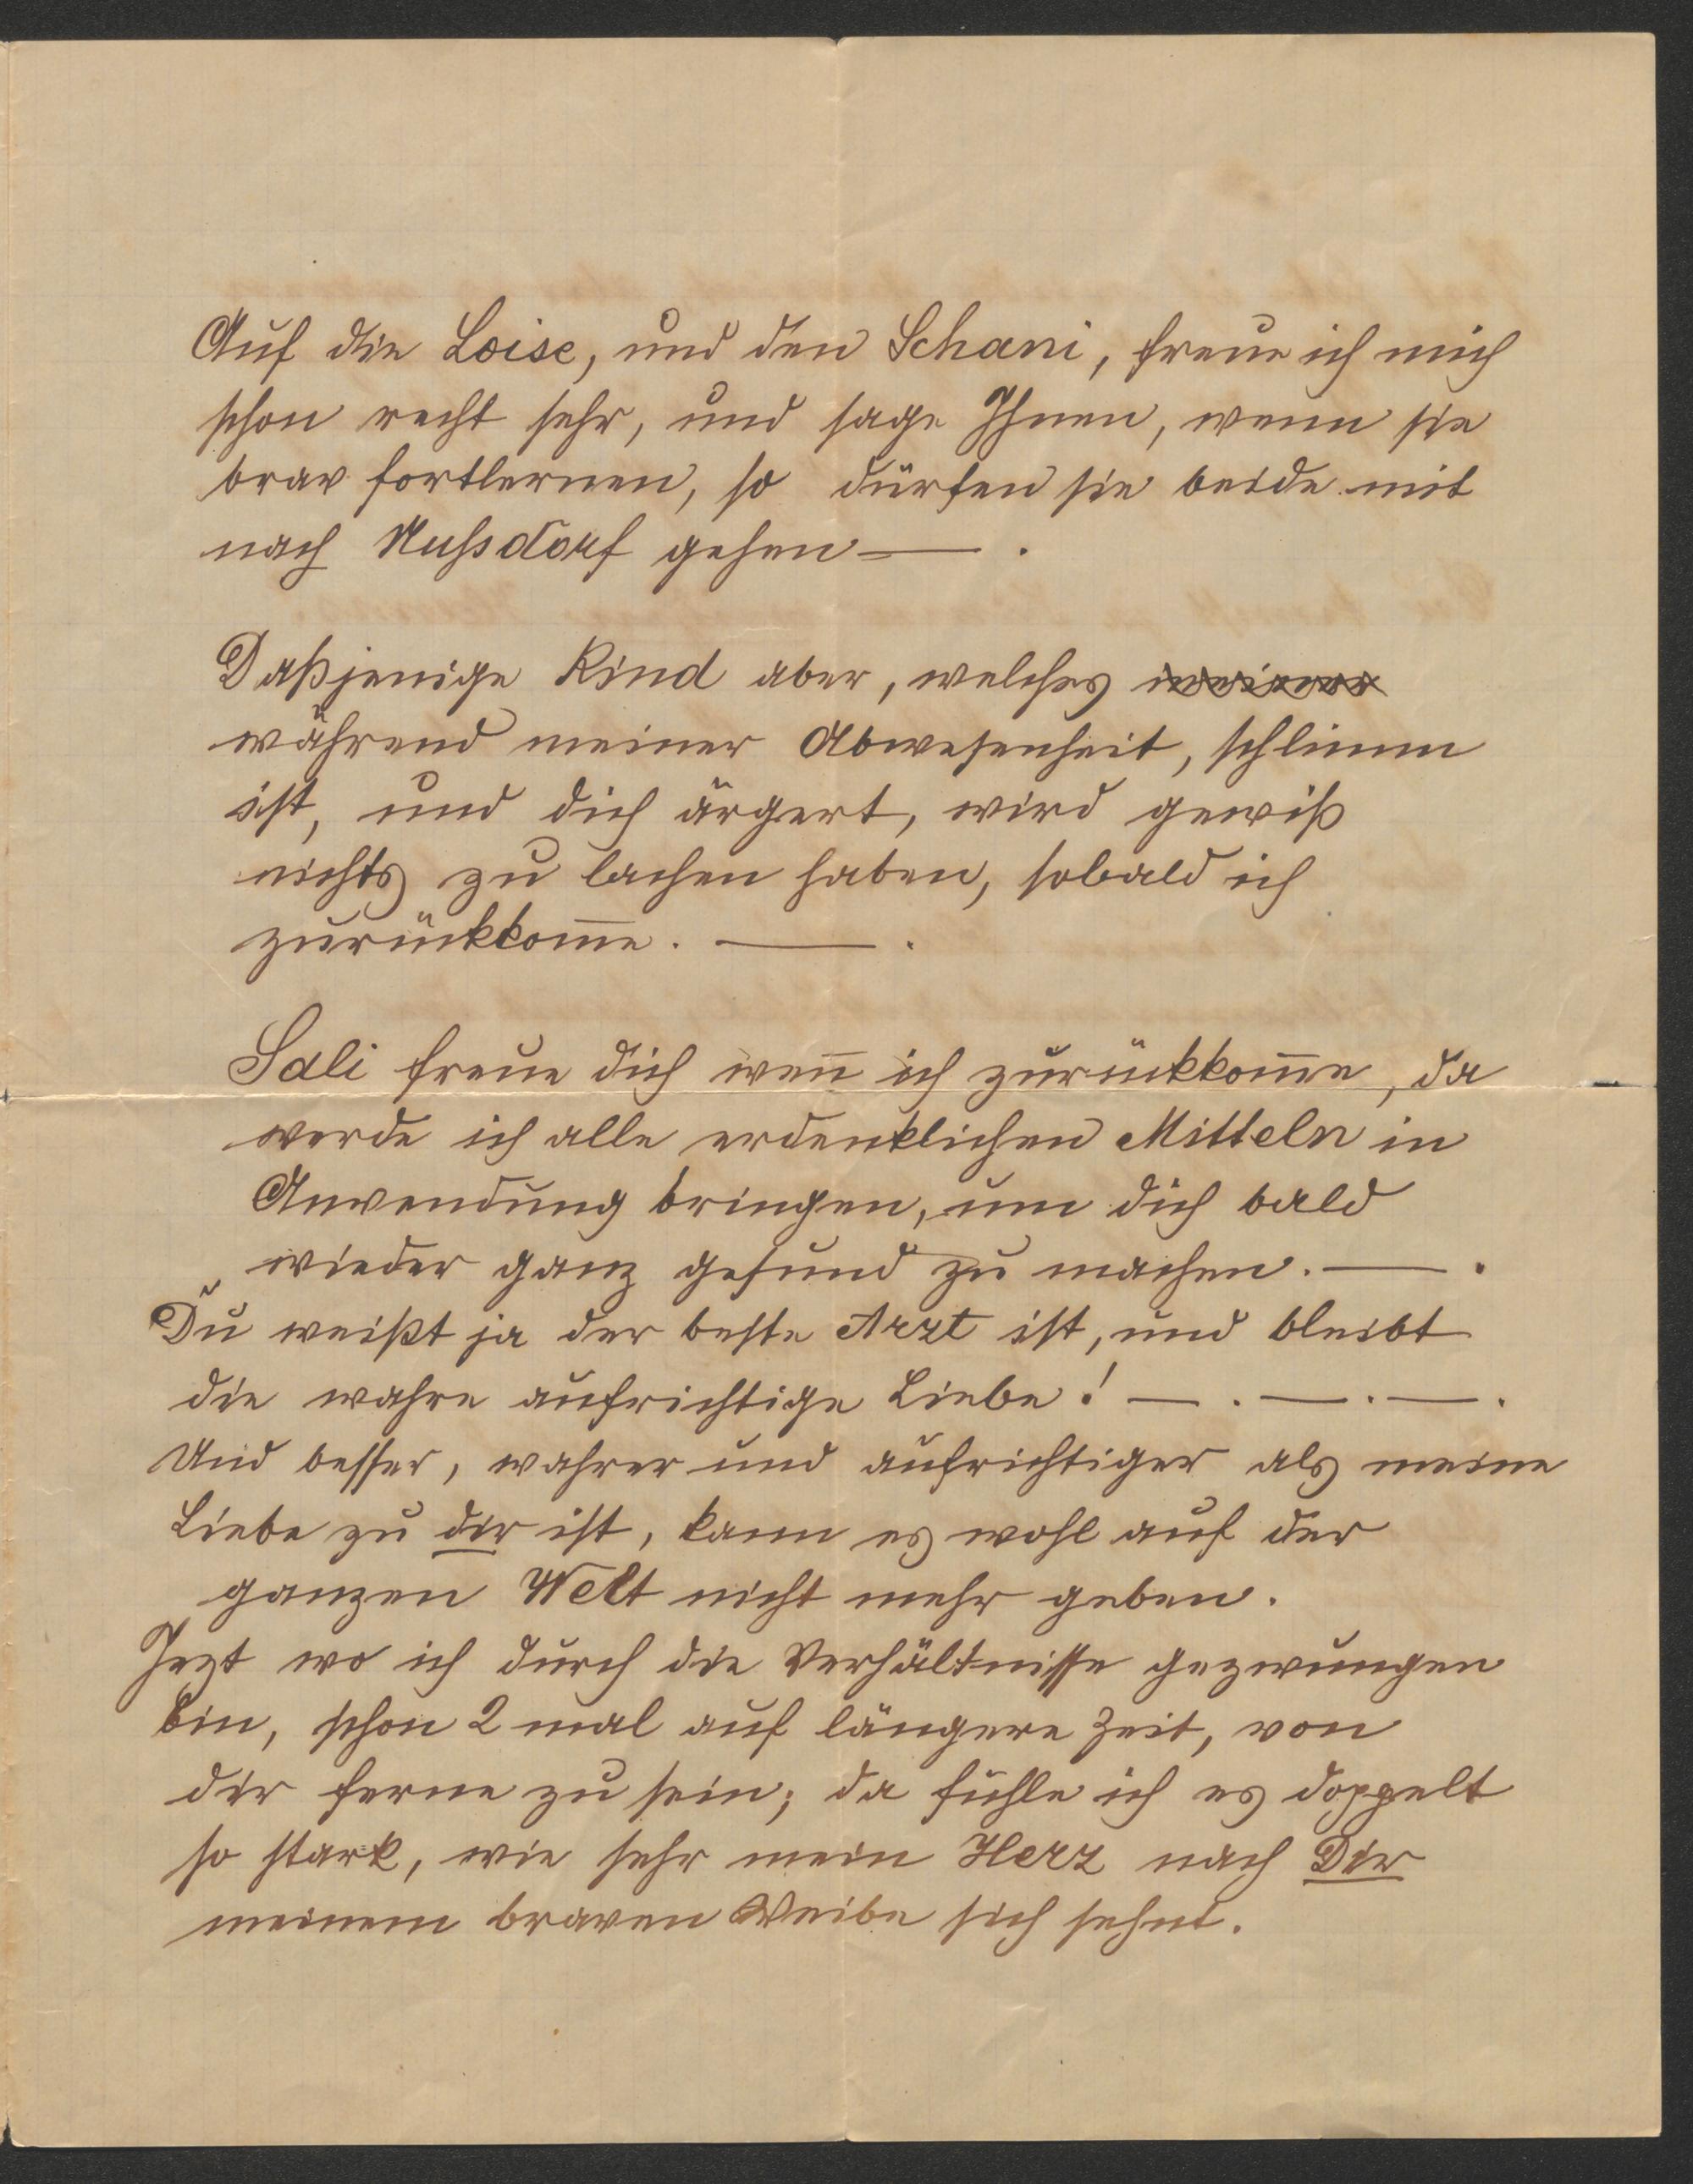 Auf die Loise, und den Schani, freue ich mich
schon recht sehr, und sage Ihnen, wenn sie
brav fortlernen, so dürfen sie beide mit
nach Nussdorf gehen — .
Daßjenige Kind aber, welches meiner
während meiner Abwesenheit, schlimm
ist, und dich ärgert, wird gewiß
nichts zu lachen haben, sobald ich
zurückkom̅e. — .
Sali freue dich wen̅ ich zurückkom̅e, da
werde ich alle erdenklichen Mitteln in
Anwendung bringen, um dich bald
wieder ganz gesund zu machen. — .
Du weißt ja der beste Arzt ist, und bleibt
die wahre aufrichtige Liebe! — . — . — .
Und besser, wahrer und aufrichtiger als meine
Liebe zu dir ist, kann es wohl auf der
ganzen Welt nicht mehr geben.
Jezt wo ich durch die Verhältnisse gezwungen
bin, schon 2 mal auf längere Zeit, von
dir ferne zu sein; da fühle ich es doppelt
so stark, wie sehr mein Herz nach Dir
meinem braven Weibe sich sehnt.